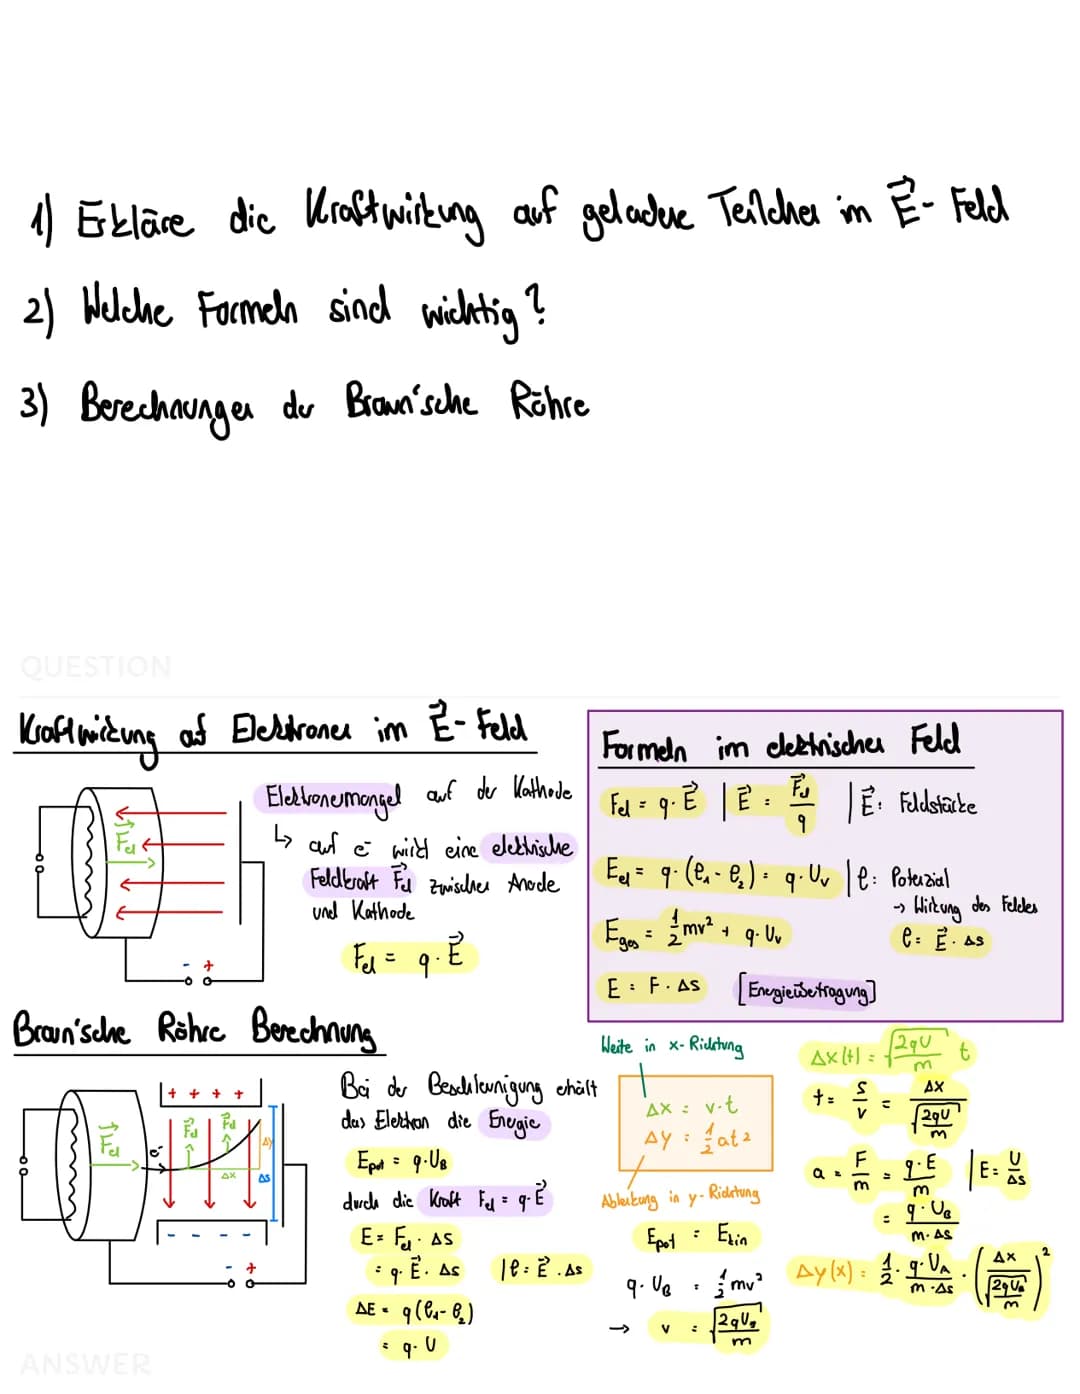 1) Erkläre die Kraftwirkung auf geladene Teilchen im E⃗- Feld
2) Welche Formeln sind wichtig?
3) Berechnungen der Braun'sche Röhre
QUESTION
Kraftwirkung auf Elektronen im E⃗- Feld
Elektronenmangel auf der Kathode
↳ auf e⁻ wird eine elektrische
Feldkraft F⃗el zwischen Anode
und Kathode
Fel = q · E⃗
F⃗el
- +
Formeln im elektrischen Feld
Fel = q · E⃗ | E⃗ = F⃗el / q | E⃗: Feldstärke
Eel = q · (φ₁ - φ₂) = q · Uᵥ | φ: Potenzial
→ Wirkung des Feldes
Eges = 1/2 mv² + q · Uᵥ
φ = E⃗ · Δs
E = F · Δs [Energieübertragung]
Braun'sche Röhre Berechnung
+ + + +
F⃗el F⃗el F⃗el
e⁻
Δy
Δx
Δs
- - - -
- +
Bei der Beschleunigung erhält
das Elektron die Energie
Epot = q · UB
durch die Kraft Fel = q · E⃗
E = Fel · Δs
= q · E⃗ · Δs | φ = E⃗ · Δs
ΔE = q (φ₁ - φ₂)
= q · U
Weite in x- Richtung
Δx = v · t
Δy = 1/2 at²
Ablenkung in y- Richtung
Epot = Ekin
q · UB = 1/2 mv²
→ v = √(2qUB / m)
Δx(t) = √(2qU / m) t
t = s / v = Δx / √(2qU / m)
a = F / m = q · E / m | E = U / Δs
= q · UB / m · Δs
Δy(x) = 1/2 · q · UA / m · Δs · (Δx / √(2qUB / m))²
ANSWER